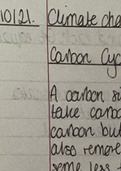 10/21. Climate cha
Carbon Cyc
A carbon si
take carbo
carbon bu
also remov
some less t